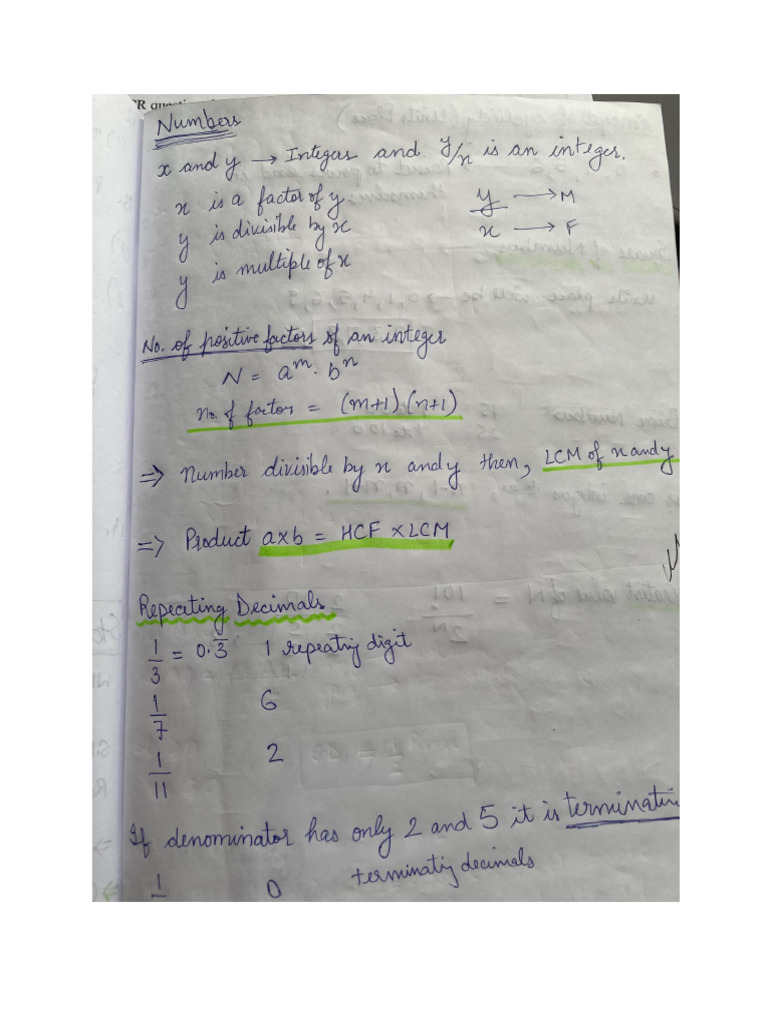 Numbers
x and y → Integers and y/x is an integer.
x is a factor of y
y is divisible by x
y is multiple of x
y → M
x → F
No. of positive factors of an integer
N = a^m · b^n
no. of factors = (m+1)·(n+1)
⇒ Number divisible by x and y then, LCM of x and y
⇒ Product a×b = HCF × LCM
Repeating Decimals
1/3 = 0.3̅ 1 repeating digit
1/7 6
1/11 2
If denominator has only 2 and 5 it is terminatin
1 0 terminatig decimals